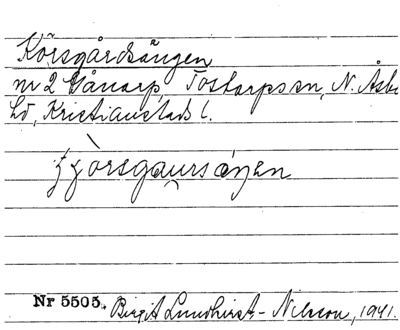 Körsgårdsängen
nr 2 Gånarp Tostarps sn, N. Åsbo
hd, Kristianstads l.
Nr 5505. Birgit Lundhqvist-Nilsson, 1941.